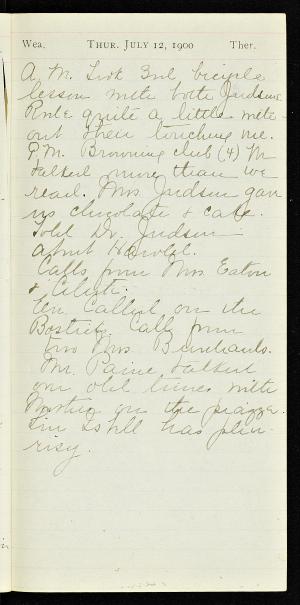 Wea. THUR. JULY 12, 1900 Ther.
A.M. Took 3rd bicycle
lesson with both Judsons
Rode quite a little with-
out their touching me.
P.M. Browning club (4) We
talked more than we
read. Mrs Judson gave
us chocolate & cake.
Told Dr. Judson
about Harold.
Calls from Mrs Eaton
& Celeste.
Ev. Called on the
Bostricks. Calls from
two Mrs Burbanks.
Mr. Paine talked
over old times with
Mother on the piazza.
Tim still has pleu-
risy.